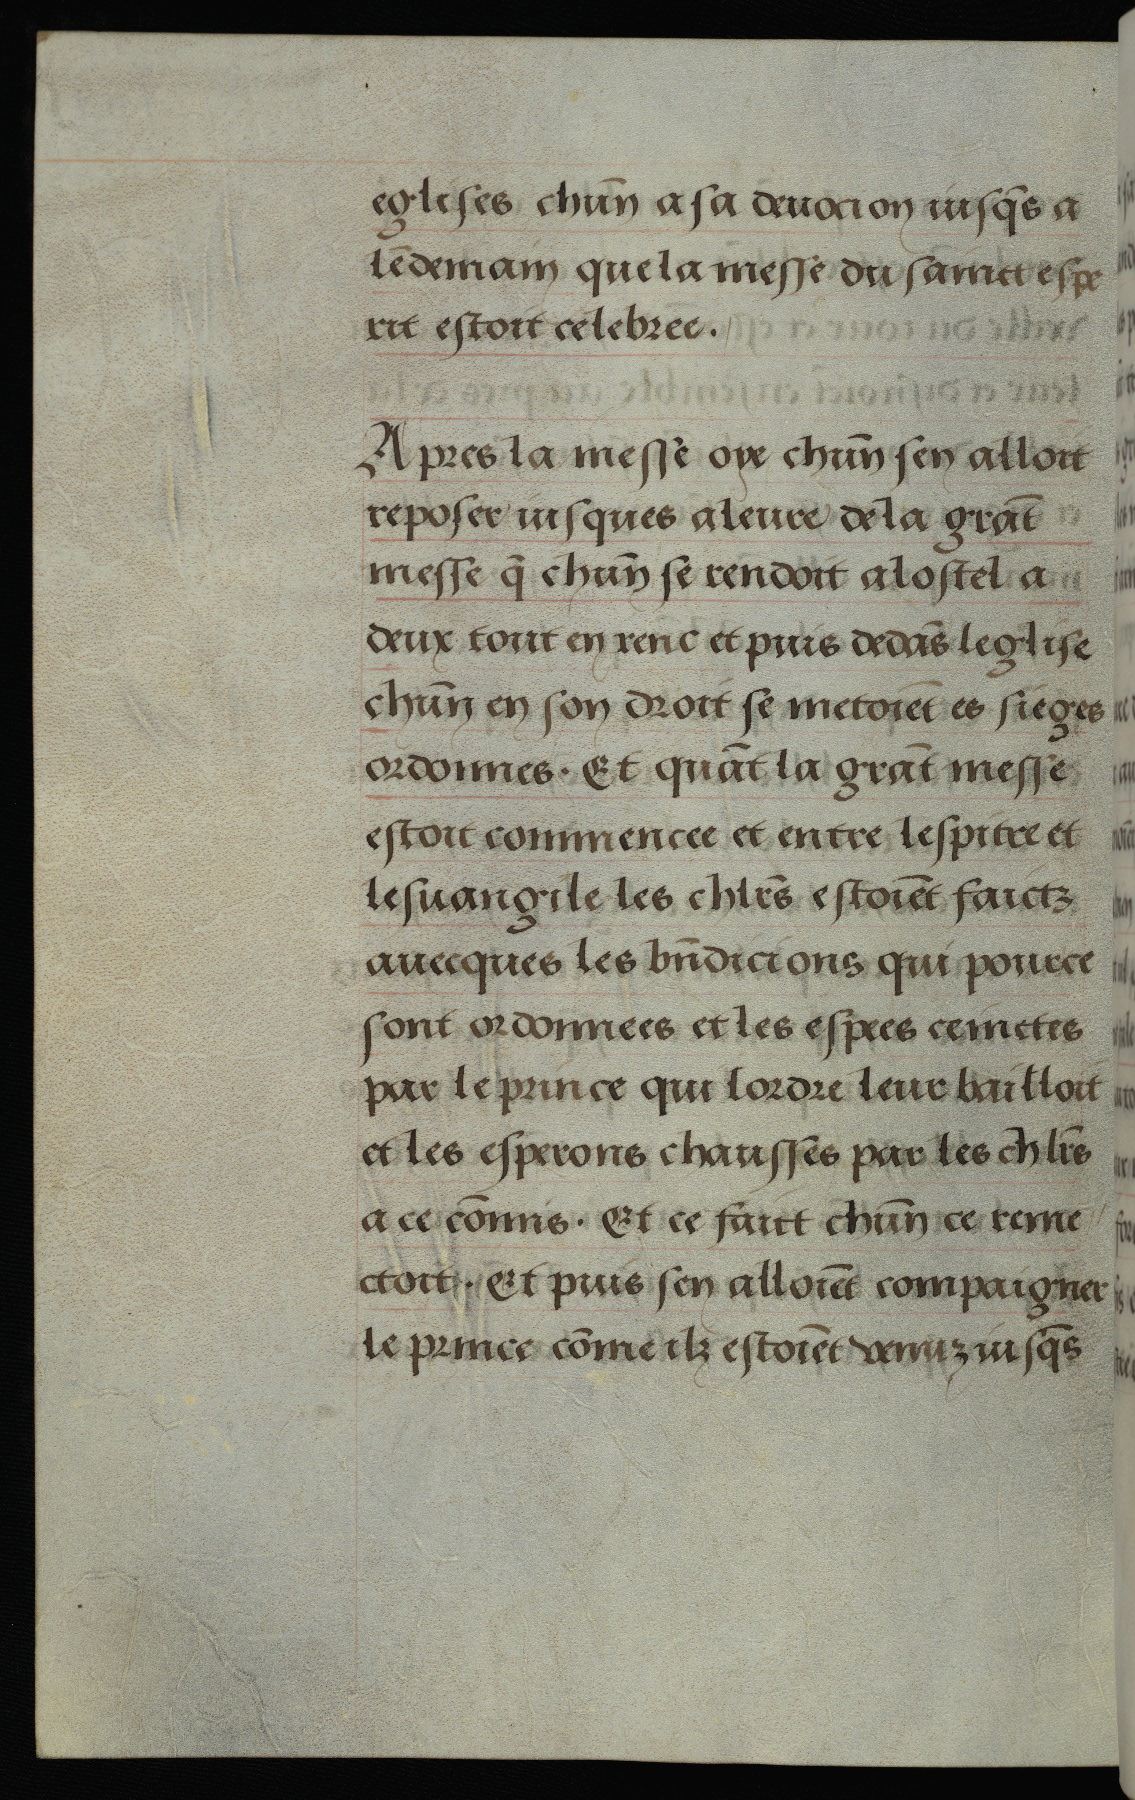 eglises chūn a sa deuocion iusq̄s a
lēdemain que la messe du sainct espe
rit estoit celebree.
Apres la messe oye chūn sen alloit
reposer iusques a leure de la grāt
messe q̄ chūn se rendoit a lostel a
deux tout en renc et puis dedās leglise
chūn en son droit se metoiēt es sieges
ordonnes. Et quāt la grāt messe
estoit commencee et entre lespitre et
lesuangile les chlr̄s estoiēt faictz
auecques les bn̄dicions qui pource
sont ordonnees et les espees ceinctes
par le prince qui lordre leur bailloit
et les esperons chausses par les chlr̄s
a ce cōmis. Et ce faict chūn ce reme
ctoit. Et puis sen alloiēt compaigner
le prince cōme ilz estoiēt venuz iusq̄s